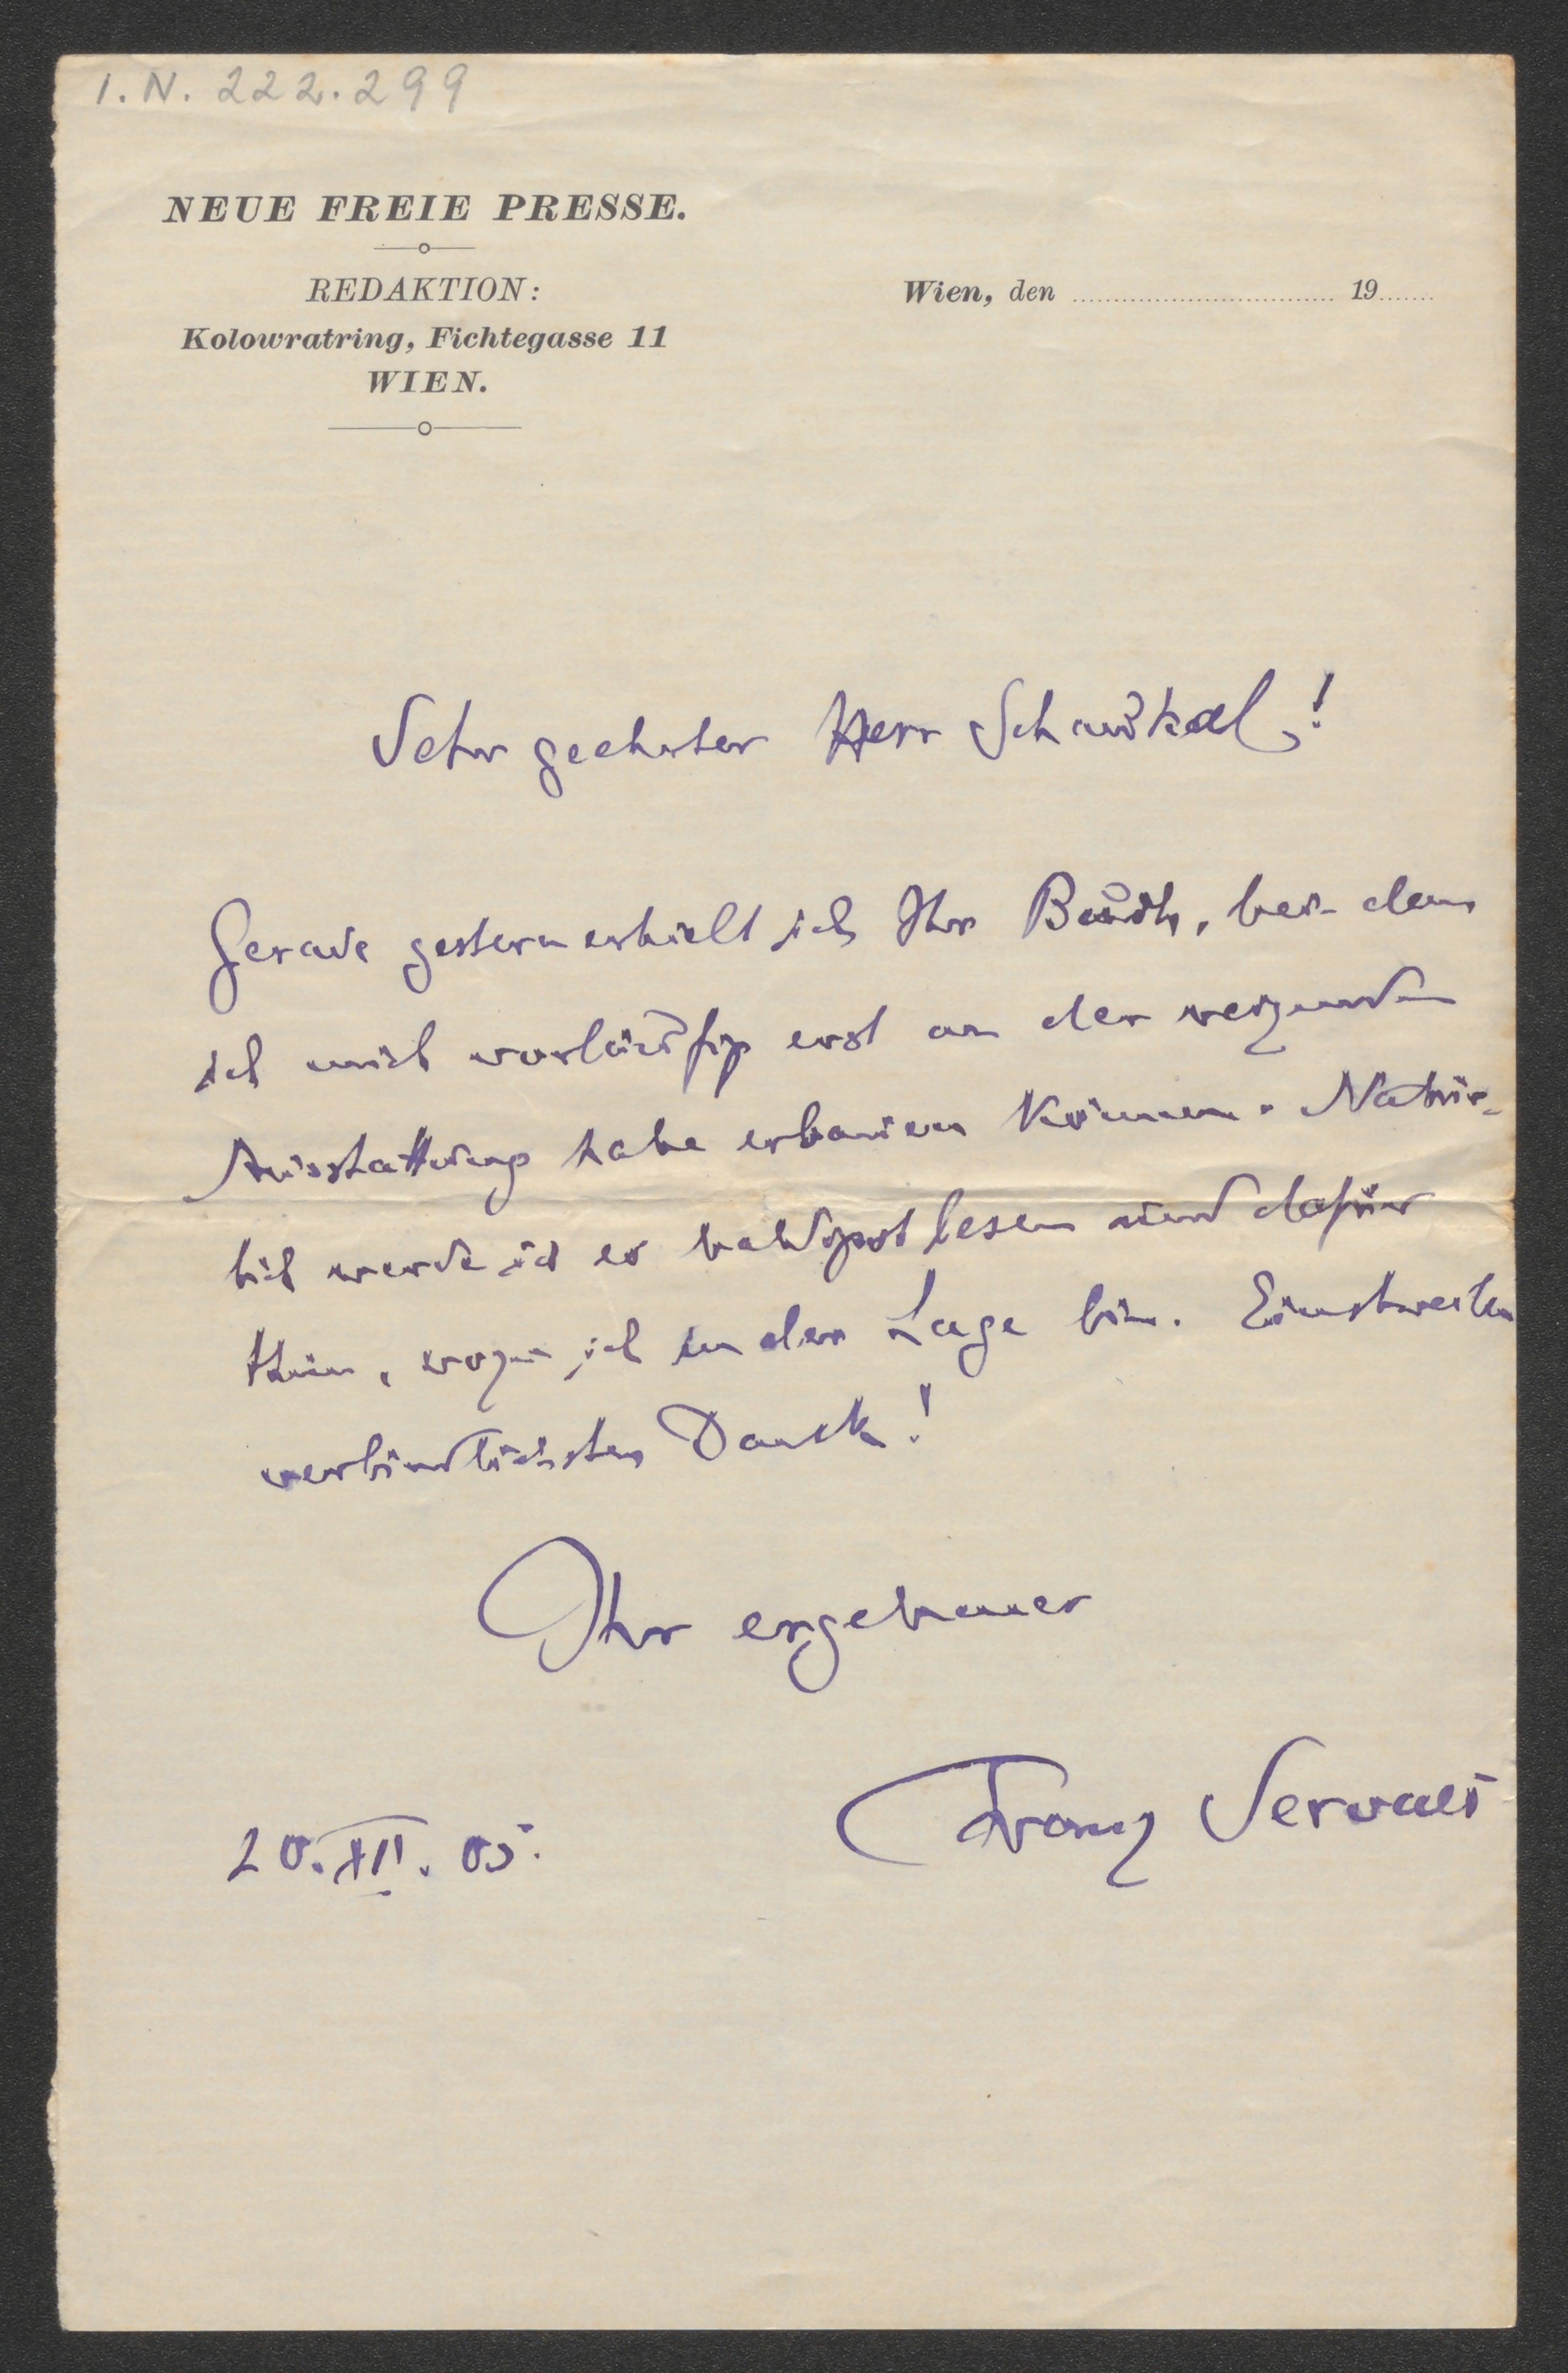 I.N. 222.299
NEUE FREIE PRESSE.
REDAKTION:
Wien, den 19
Kolowratring, Fichtegasse 11
WIEN.
Sehr geehrter Herr Schaukal!
Gerade gestern erhielt ich Ihr Buch, bei dem
ich mich vorläufig erst an der reizenden
Ausstattung habe erbauen können. Natür-
lich werde ich es baldigst lesen und dafür
thun, wozu ich in der Lage bin. Einstweilen
verbindlichsten Dank!
Ihr ergebener
Franz Servaes
20. XII. 05.